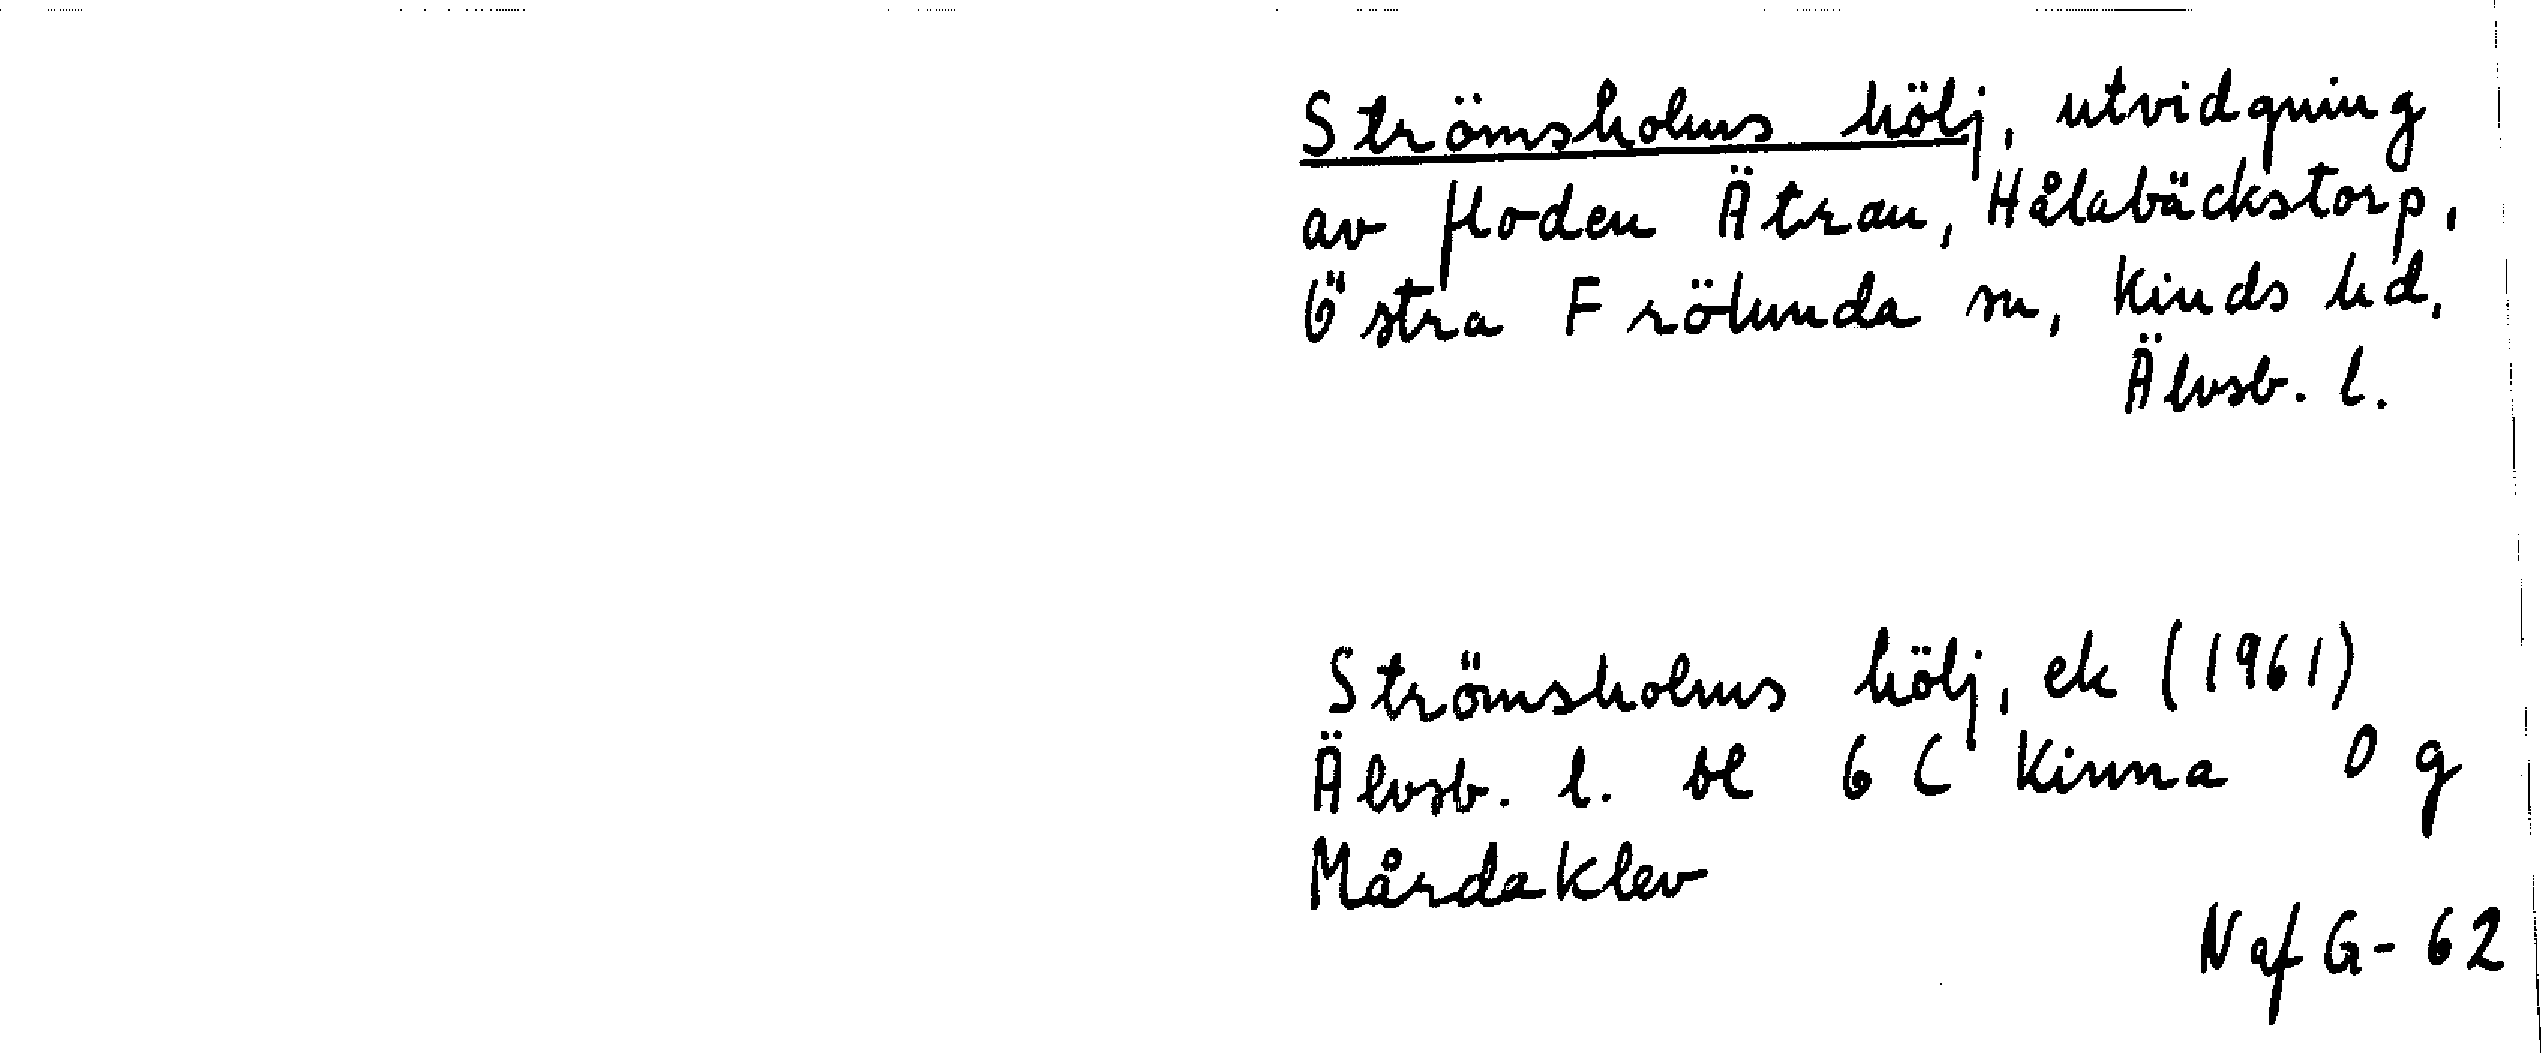 Strömsholms hölj, utvidgning
av floden Ätran, Hålabäckstorp,
Östra Frölunda sn, Kinds hd,
Älvsb. l.
Strömsholms hölj, ek (1961)
Älvsb. l. bl 6 C Kinna 0 g
Mårdaklev
N af G-62